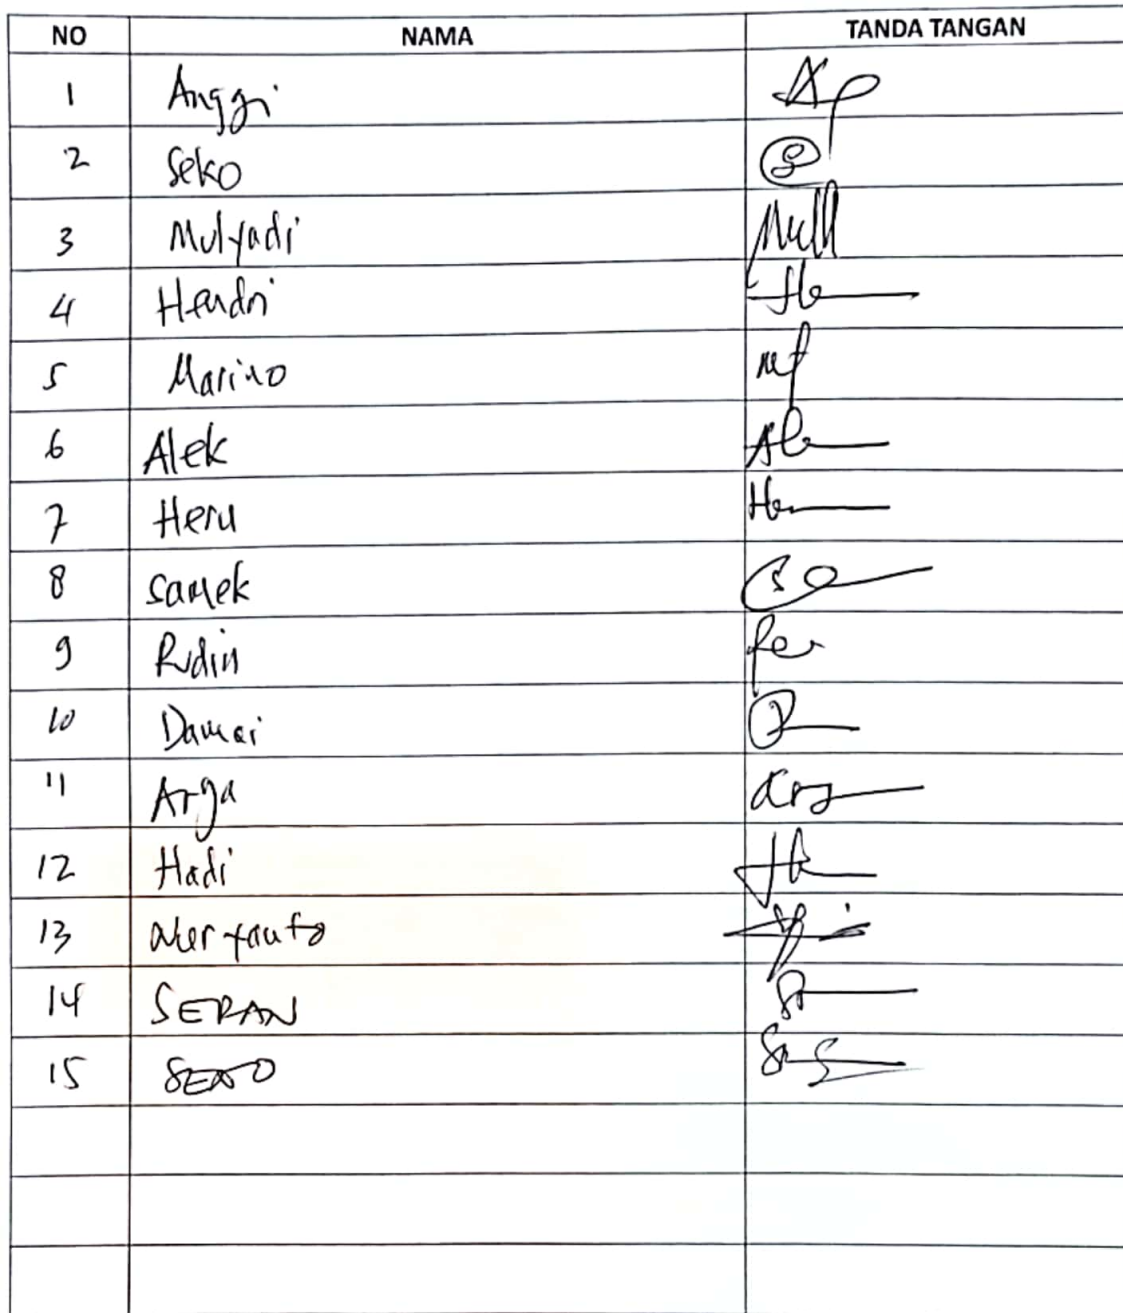 NO NAMA TANDA TANGAN
1 Anggi
2 Seko
3 Mulyadi
4 Hendri
5 Marino
6 Alek
7 Heru
8 Samek
9 Rudin
10 Damai
11 Arga
12 Hadi
13
14 SERAN
15